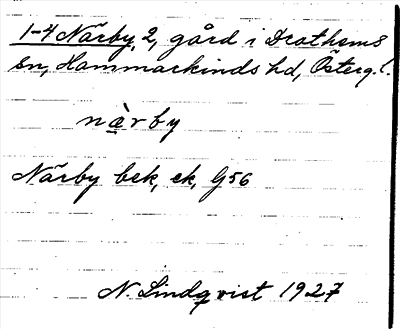 1-4 Närby, 2, gård i Drothems
sn, Hammarkinds hd, Österg. l.
næ̀rby
Närby bek, ek, G56
N. Lindqvist 1927